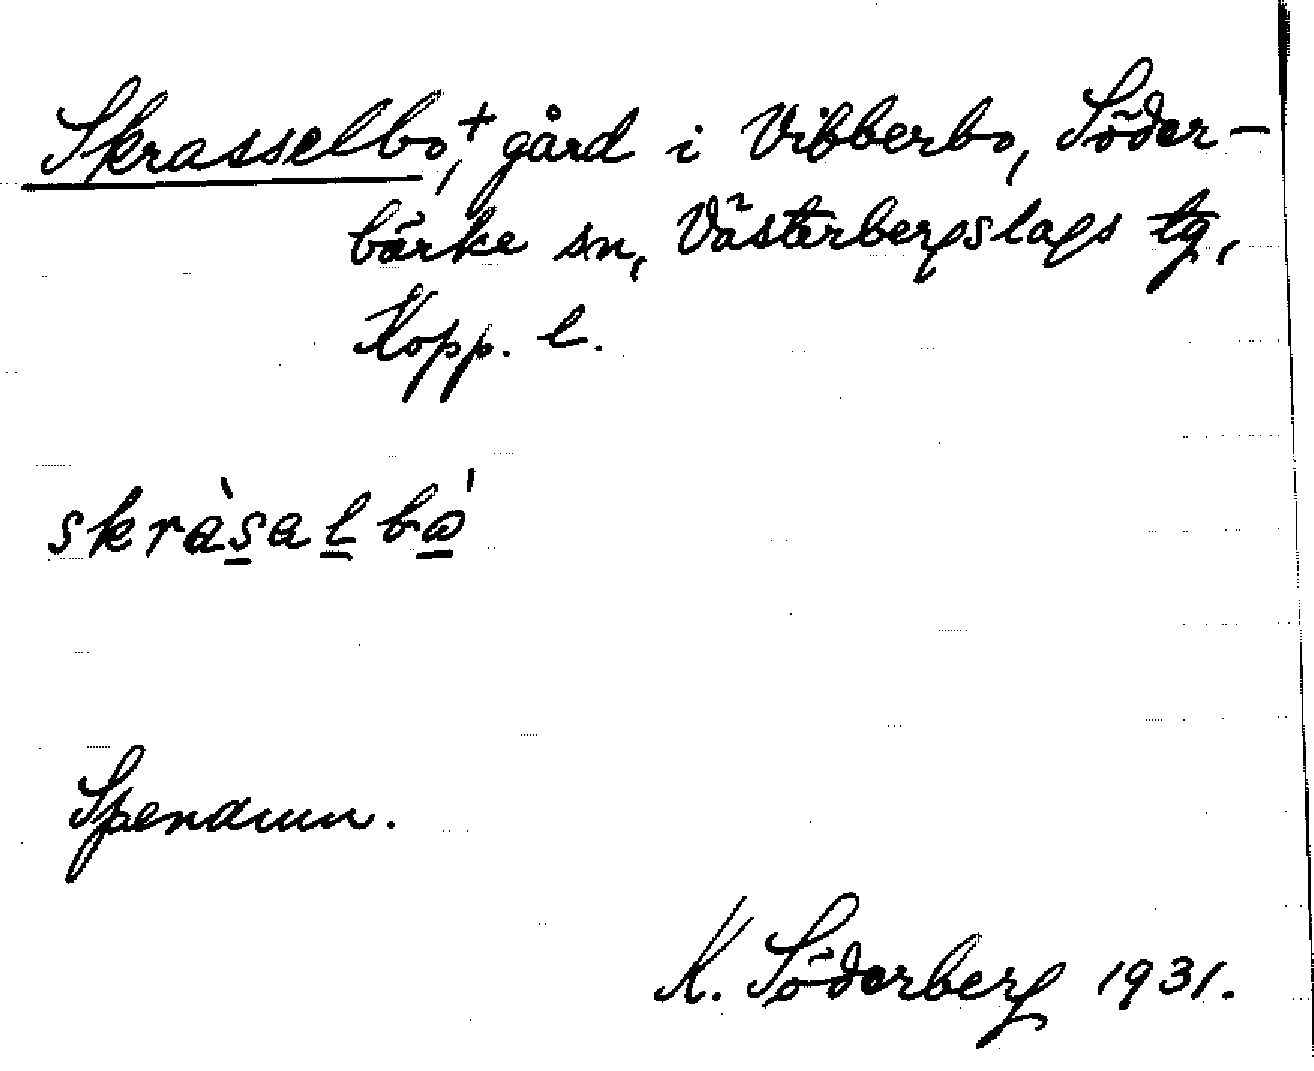 Skrasselbo,⁺ gård i Vibberbo, Söder-
bärke sn, Västerbergslags tg,
Kopp. l.
skra`salbω'
Spendrun.
K. Söderberg 1931.